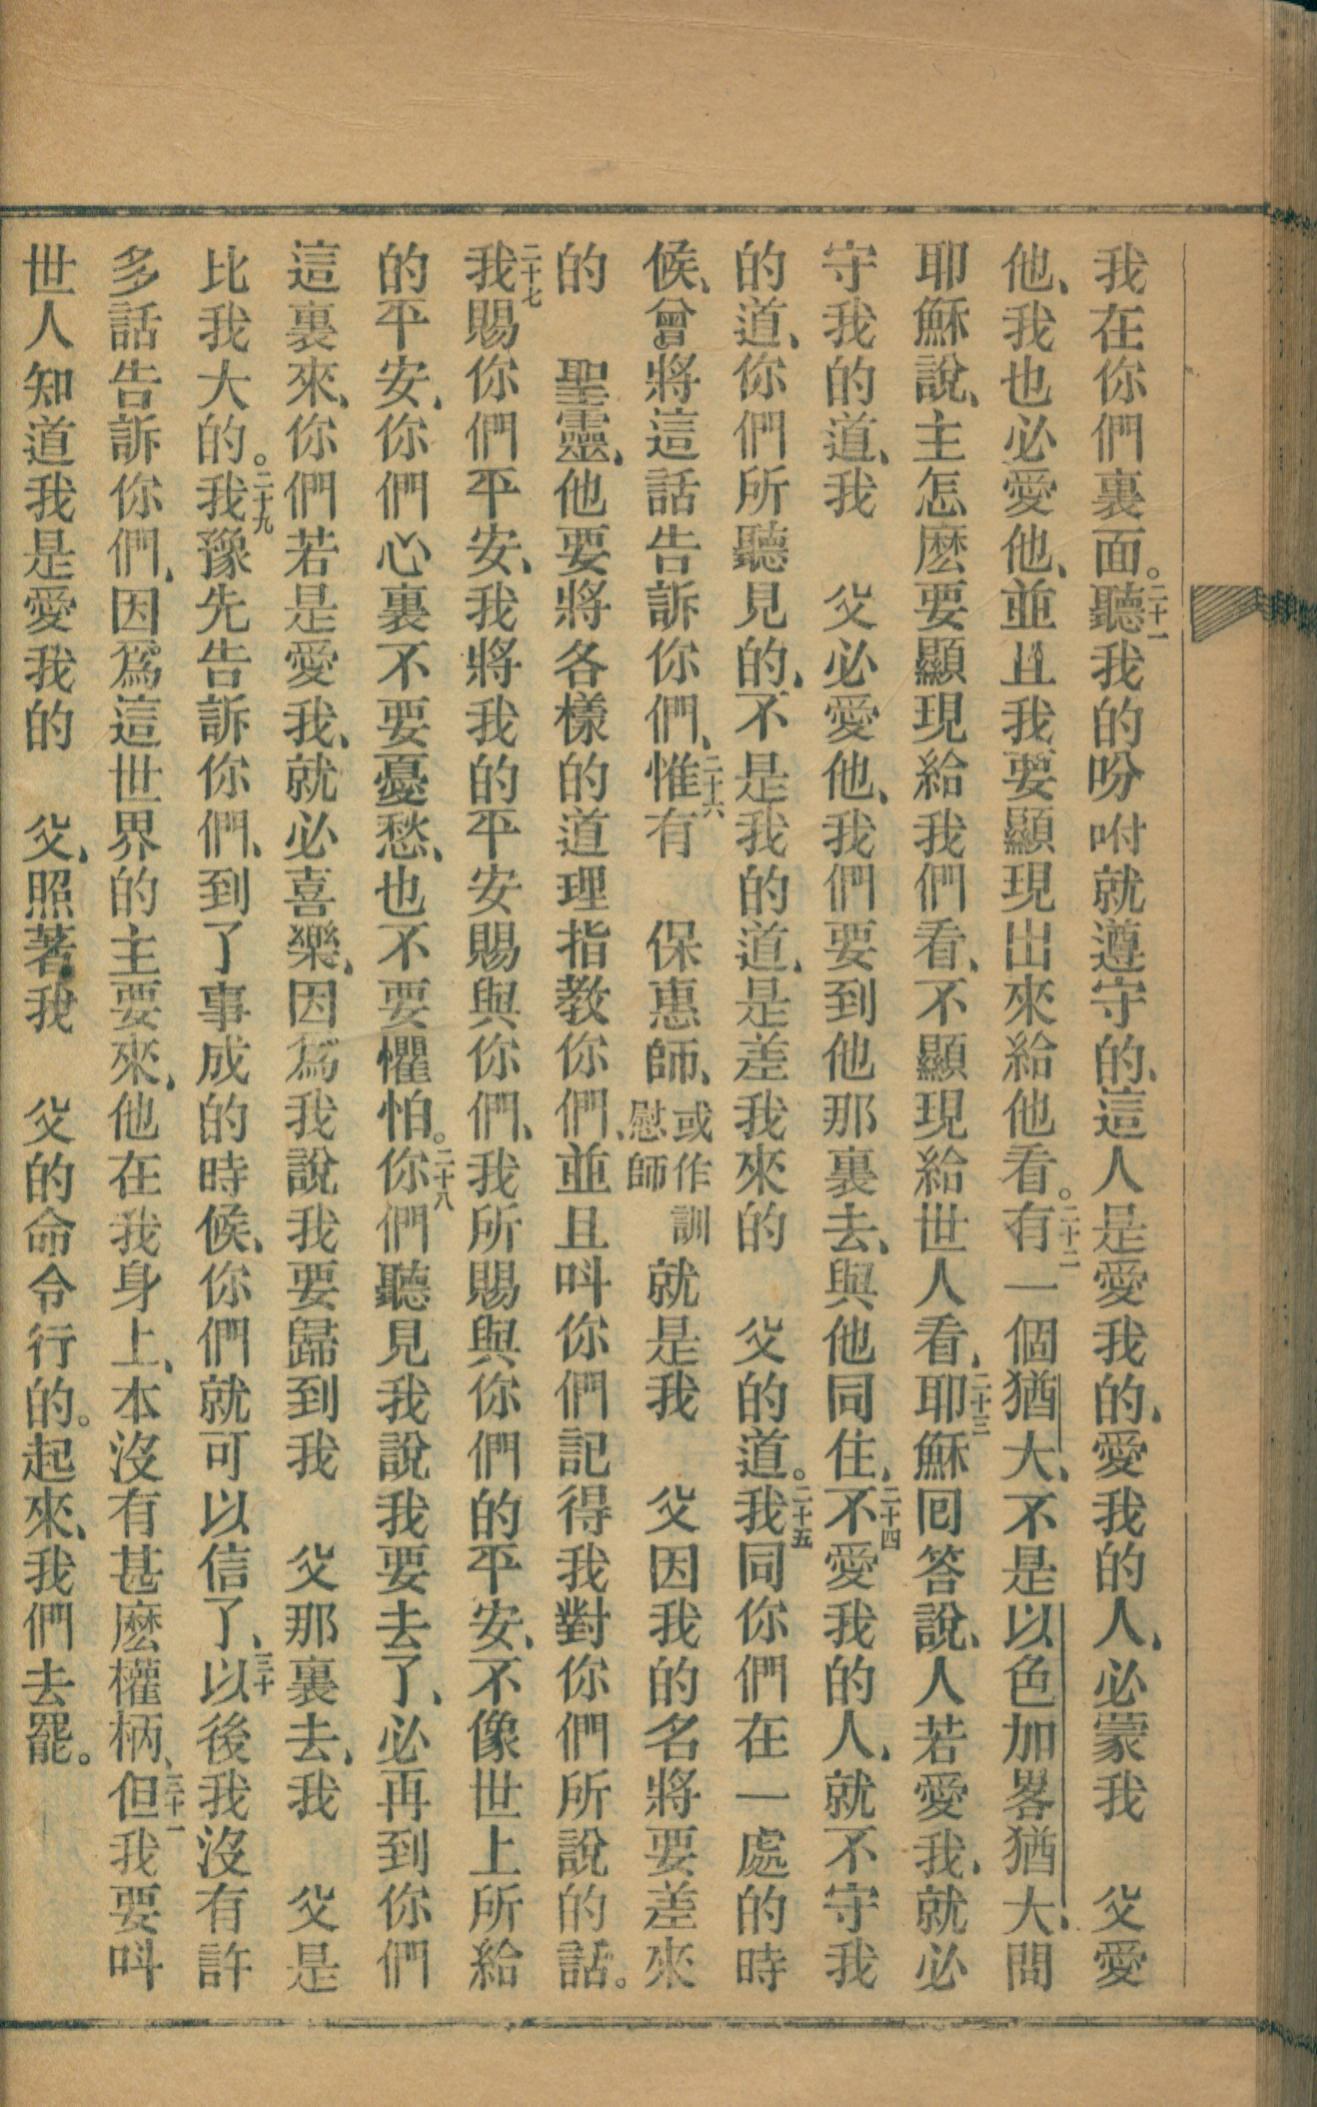 我在你們裏面。二十一聽我的吩咐就遵守的、這人是愛我的、愛我的人、必蒙我　父愛
他、我也必愛他、並且我要顯現出來給他看。二十二有一個猶大、不是以色加畧猶大、問
耶穌說、主怎麽要顯現給我們看、不顯現給世人看、二十三耶穌囘答說、人若愛我、就必
守我的道、我　父必愛他、我們要到他那裏去、與他同住、二十四不愛我的人、就不守我
的道、你們所聽見的、不是我的道、是差我來的　父的道。二十五我同你們在一處的時
候、曾將這話告訴你們、二十六惟有　保惠師、或作訓慰師就是我　父因我的名將要差來
的　聖靈、他要將各樣的道理指教你們、並且呌你們記得我對你們所說的話。
二十七我賜你們平安、我將我的平安賜與你們、我所賜與你們的平安、不像世上所給
的平安、你們心裏不要憂愁、也不要懼怕。二十八你們聽見我說我要去了、必再到你們
這裏來、你們若是愛我、就必喜樂、因爲我說我要歸到我　父那裏去、我　父是
比我大的。二十九我豫先告訴你們、到了事成的時候、你們就可以信了、三十以後我沒有許
多話告訴你們、因爲這世界的主要來、他在我身上、本沒有甚麽權柄、三十一但我要呌
世人知道我是愛我的　父、照著我　父的命令行的。起來、我們去罷。